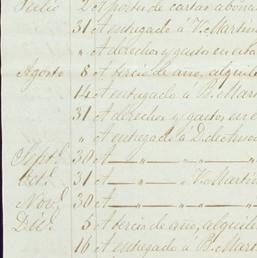 Julio 2 A porte de cartas abona
31 A entregado á V. Martin
" A derechos y gastos en esta
Agosto 8 A tercio de año, alquile
14 A entregado á B. Mar
31 A derechos y gastos, en e
" A entregado á D.
Sept.e 30 A — " — " — "
Oct.e 31 A — " — V. Martin
Nov.e 30 A — " — " — "
Dic.e 5 A tercio de año, alquile
16 A entregado á B. Mart